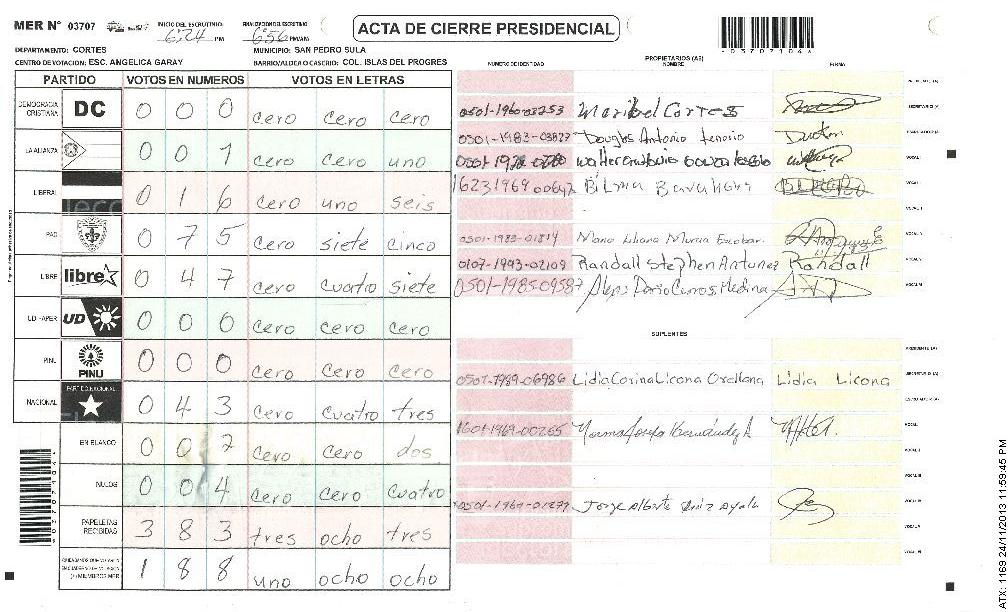 MER Nº 03707 INICIO DEL ESCRUTINIO 6:24 PM FINALIZACION DEL ESCRUTINIO 6:56 PM/AM
ACTA DE CIERRE PRESIDENCIAL
03707104
DEPARTAMENTO: CORTES MUNICIPIO: SAN PEDRO SULA
CENTRO DE VOTACION: ESC. ANGELICA GARAY BARRIO/ALDEA O CASERIO: COL. ISLAS DEL PROGRES
NUMERO DE IDENTIDAD PROPIETARIOS (AS) NOMBRE FIRMA
PARTIDO VOTOS EN NUMEROS VOTOS EN LETRAS
DEMOCRACIA CRISTIANA DC 0 0 0 cero cero cero
LA ALIANZA 0 0 1 cero cero uno
LIBERAL 0 1 6 cero uno seis
PAC 0 7 5 cero siete cinco
LIBRE libre 0 4 7 cero cuatro siete
UD - FAPER UD 0 0 0 cero cero cero
PINU PINU 0 0 0 cero cero cero
NACIONAL PARTIDO NACIONAL 0 4 3 cero cuatro tres
EN BLANCO 0 0 2 cero cero dos
NULOS 0 0 4 cero cero cuatro
PAPELETAS RECIBIDAS 3 8 3 tres ocho tres
1 8 8 uno ocho ocho
PRESIDENTE (A)
0501-1960-03253 Maribel Cortes SECRETARIO (A)
0501-1983-03827 Douglas Antonio Tenorio ESCRUTADOR (A)
VOCAL I
Bilma Barahona VOCAL II
0501-1983-01814 Maria Liliana Murcia Escobar
0107-1993-02109 Randall Stephen Antunez Randall
0501-1985-09587 Medina
SUPLENTES
PRESIDENTE (A)
0507-1989-06986 Lidia Corina Licona Orellana Lidia Licona SECRETARIO (A)
ESCRUTADOR (A)
1601-1969-00265 Norma Josefa Hernández A VOCAL I
VOCAL II
Jorge Alberto Ruiz Ayala VOCAL III
ATX: 1169 24/11/2013 11:59:45 PM